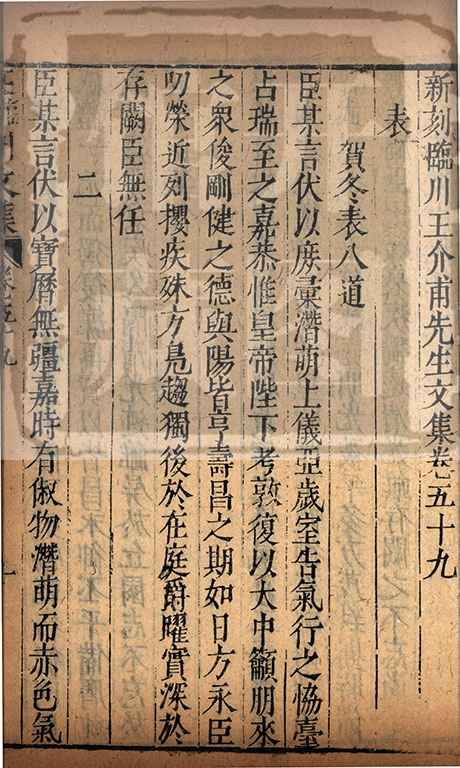 新刻臨川王介甫先生文集卷五十九
表
賀冬表八道
臣某言伏以庶彙潛萌上儀亞歲室告氣行之恊臺
占瑞至之嘉恭惟皇帝陛下考敦復以大中籲朋來
之衆俊剛健之德與陽皆亨壽昌之期如日方永臣
叨榮近列攖疾殊方鳧趨獨後於在庭爵曜實深於
存闕臣無任
二
臣某言伏以寶曆無疆嘉時有俶物潛萌而赤色氣
文集 卷五十九 一